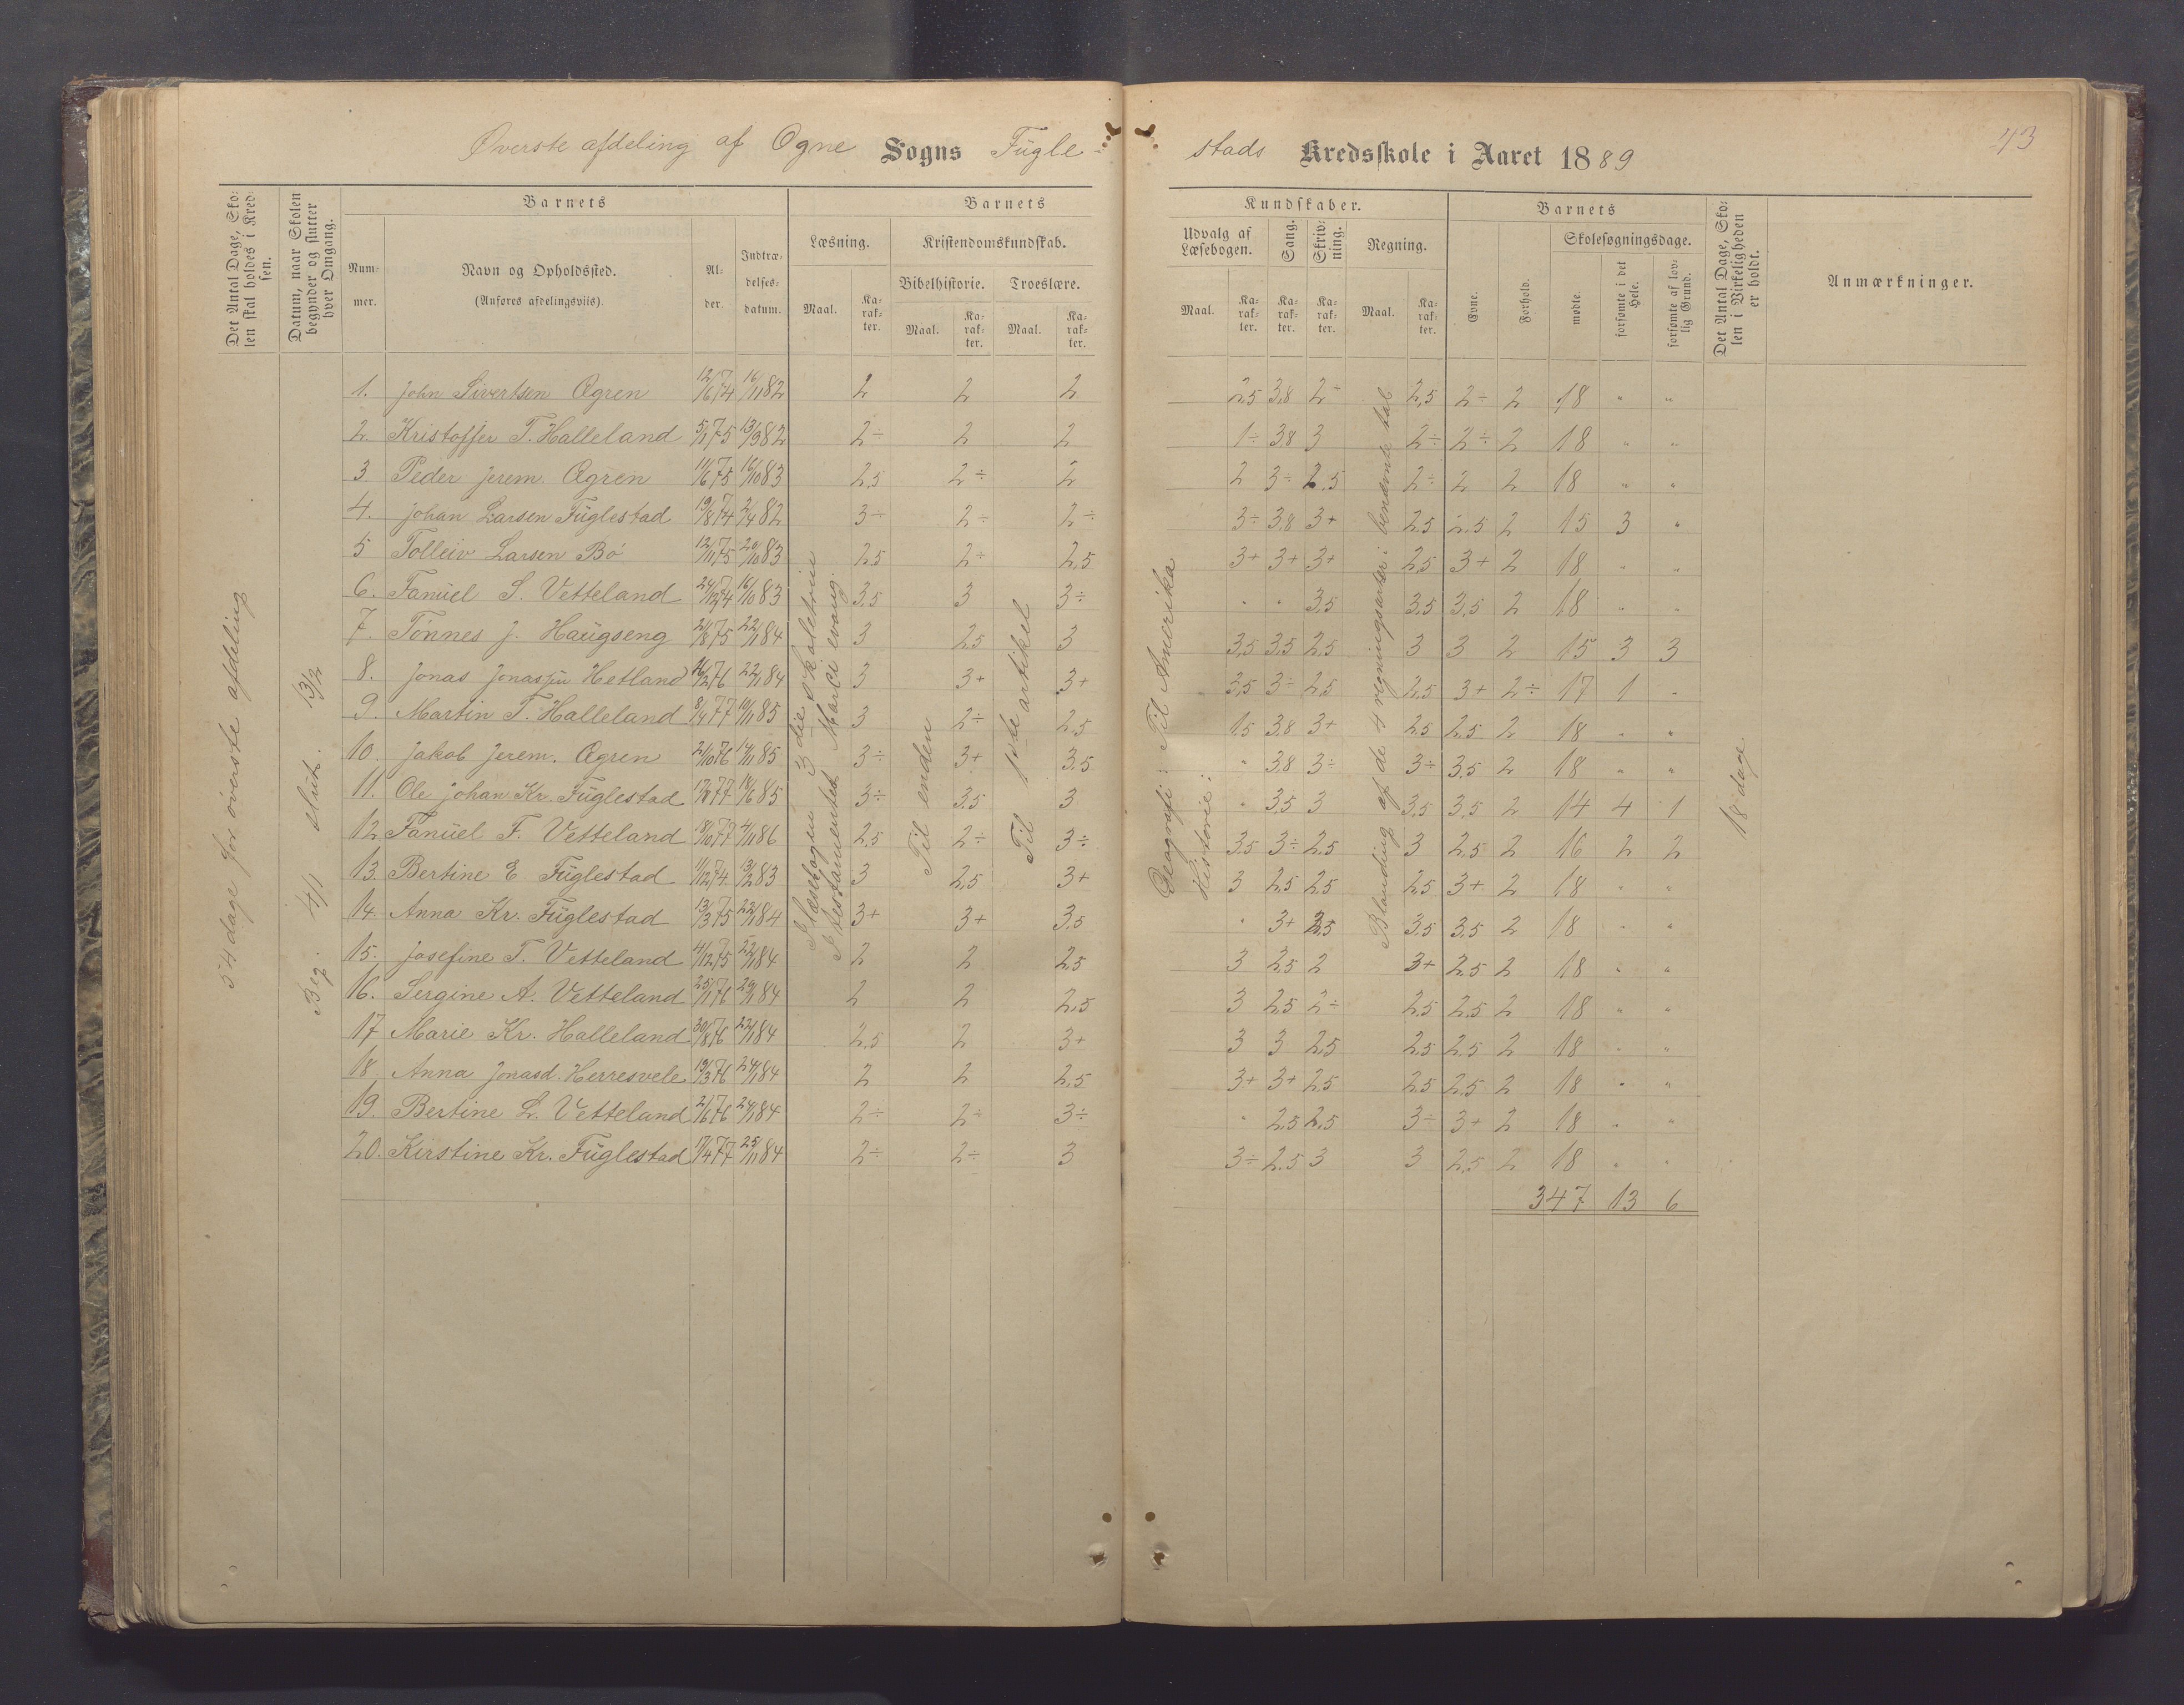 Øverste afdeling af Ogne Sogns Fügle-
stads Kredsskole i Aaret 1889
43
Det Antal Dage, Sko-
len skal holdes i Kred-
sen.
Datum, naar Skolen
begynder og slutter
hver Omgang.
Barnets
Num-
mer.
Navn og Opholdssted.
(Anføres afdelingsviis).
Al-
der.
Indtræ-
delses-
datum.
Barnets
Læsning.
Maal.
Ka-
rak-
ter.
Kristendomskundskab.
Bibelhistorie.
Maal.
Ka-
rak-
ter.
Troeslære.
Maal.
Ka-
rak-
ter.
Kundskaber.
Udvalg af
Læsebogen.
Maal.
Ka-
rak-
ter.
Sang.
Ka-
rak-
ter.
Skriv-
ning.
Ka-
rak-
ter.
Regning.
Maal.
Ka-
rak-
ter.
Barnets
Evne.
Forhold.
Skolesøgningsdage.
mødte.
forsømte i det
Hele.
forsømte af lov-
lig Grund.
Det Antal Dage, Sko-
len i Virkeligheden
er holdt.
Anmærkninger.
54 dage for øverste afdeling
Beg. 4/1 slut. 13/2
I læsebogen 3die skoletrin
I testamentet Marci evang.
Til enden
Til 1ste artikel
Geografi: Til Amerika
Historie:
Blanding af de 4 regningsarter i benævnte tal
18 dage
1. John Sivertsen Ogren 12/6 74 16/11 82 2 2 2 2,5 3,8 2÷ 2,5 2÷ 2 18 " "
2. Kristoffer T. Halleland 5/1 75 13/9 82 2÷ 2 2 1÷ 3,8 3 2÷ 2÷ 2 18 " "
3. Peder Jerem. Ogren 11/6 75 16/10 83 2,5 2÷ 2 2 3÷ 2,5 2÷ 2 2 18 " "
4. Johan Larsen Füglestad 19/8 74 2/4 82 3÷ 2÷ 2÷ 3÷ 3,8 3+ 2,5 2,5 2 15 3 "
5 Tolleiv Larsen Bö 12/11 75 20/10 83 2,5 2÷ 2,5 3+ 3+ 3+ 2,5 3+ 2 18 " "
6. Fanüel S. Vetteland 24/12 74 16/10 83 3,5 3 3÷ " " 3,5 3,5 3,5 2 18 " "
7. Tönnes J. Haügseng 2/8 75 22/1 84 3 2,5 3 3,5 3,5 2,5 3 3 2 15 3 3
8. Jonas Jonassen Hetland 16/2 76 22/1 84 3 3+ 3+ 3,5 3÷ 2,5 2,5 3+ 2÷ 17 1 -
9. Martin T. Halleland 8/4 77 10/11 85 3 2÷ 2,5 1,5 3,8 3+ 2,5 2,5 2 18 " "
10. Jakob Jerem. Ogren 2/10 76 14/11 85 3÷ 3+ 3,5 " 3,8 3÷ 3÷ 3,5 2 18 " "
11. Ole Johan Kr. Füglestad 77 85 3÷ 3,5 3 " 3,5 3 3,5 3,5 2 14 4 1
12 Fanüel F. Vetteland 18/10 77 4/11 86 2,5 2÷ 3÷ 3,5 3÷ 2,5 3 2,5 2 16 2 2
13. Bertine E Füglestad 11/12 74 13/2 83 3 2,5 3+ 3 2,5 2,5 2,5 3+ 2 18 " "
14. Anna Kr. Füglestad 13/3 75 22/1 84 3+ 3+ 3,5 " 3+ 3,5 3,5 3,5 2 18 " "
15. Josefine T. Vetteland 4/12 75 22/1 84 2 2 2,5 3 2,5 2 3+ 2,5 2 18 " "
16. Sergine A. Vetteland 25/1 76 29/1 84 2 2 2,5 3 2,5 2÷ 2,5 2,5 2 18 " "
17 Marie Kr. Halleland 30/8 76 22/1 84 2,5 2 3+ 3 3 2,5 2,5 2,5 2 18 " "
18. Anna Jonasd. Herresvele 19/3 76 24/1 84 2 2 2,5 3+ 3+ 2,5 2,5 2,5 2 18 " "
19. Bertine L. Vetteland 2/6 76 24/1 84 2÷ 2÷ 3÷ " 2,5 2,5 3÷ 3+ 2 18 " "
20. Kirstine Kr. Füglestad 17/4 77 25/11 84 2÷ 2÷ 3 3÷ 2,5 3 3 2,5 2 18 " "
347 13 6